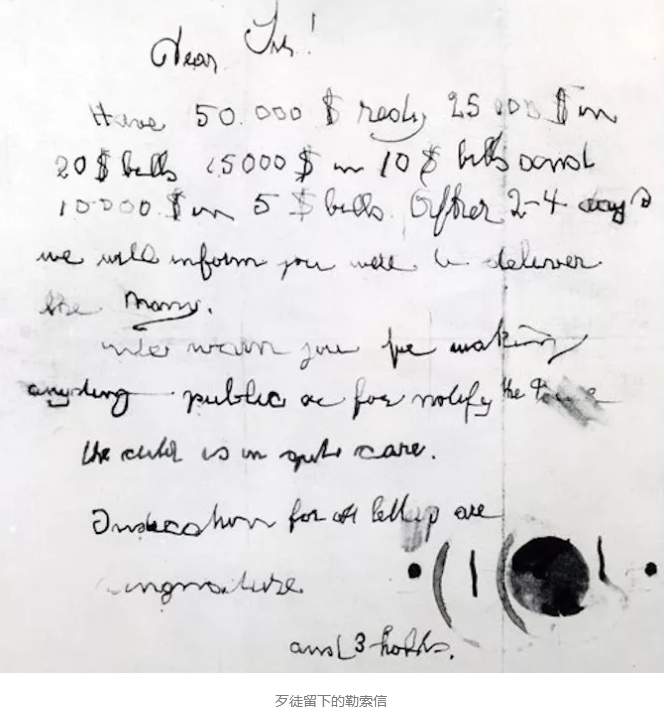 Dear Sir!
Have 50.000 $ redy 25 000 $ in
20 $ bills 15000 $ in 10 $ bills and
10000 $ in 5 $ bills. After 2-4 days
we will inform you were to deliver
the Mony.
We warn you for making
anyding public or for notify the Police
the child is in gute care.
Indication for all letters are
singnature
and 3 holds.
歹徒留下的勒索信